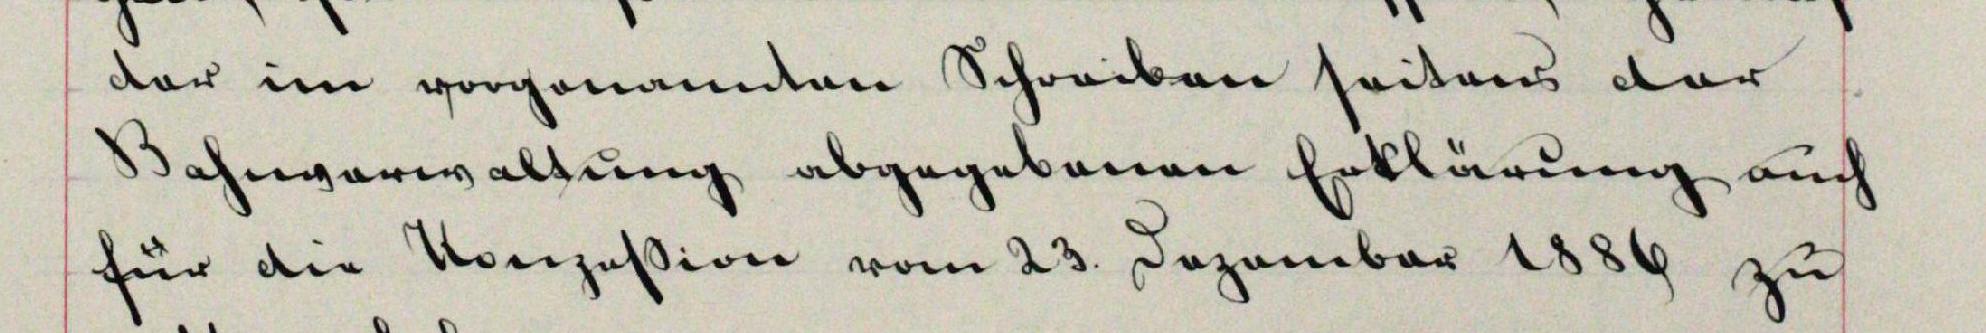 der im vorgenannten Schreiben seitens der
Bahnverwaltung abgegebenen Erklärung auch
für die Konzession vom 23. Dezember 1886 zu